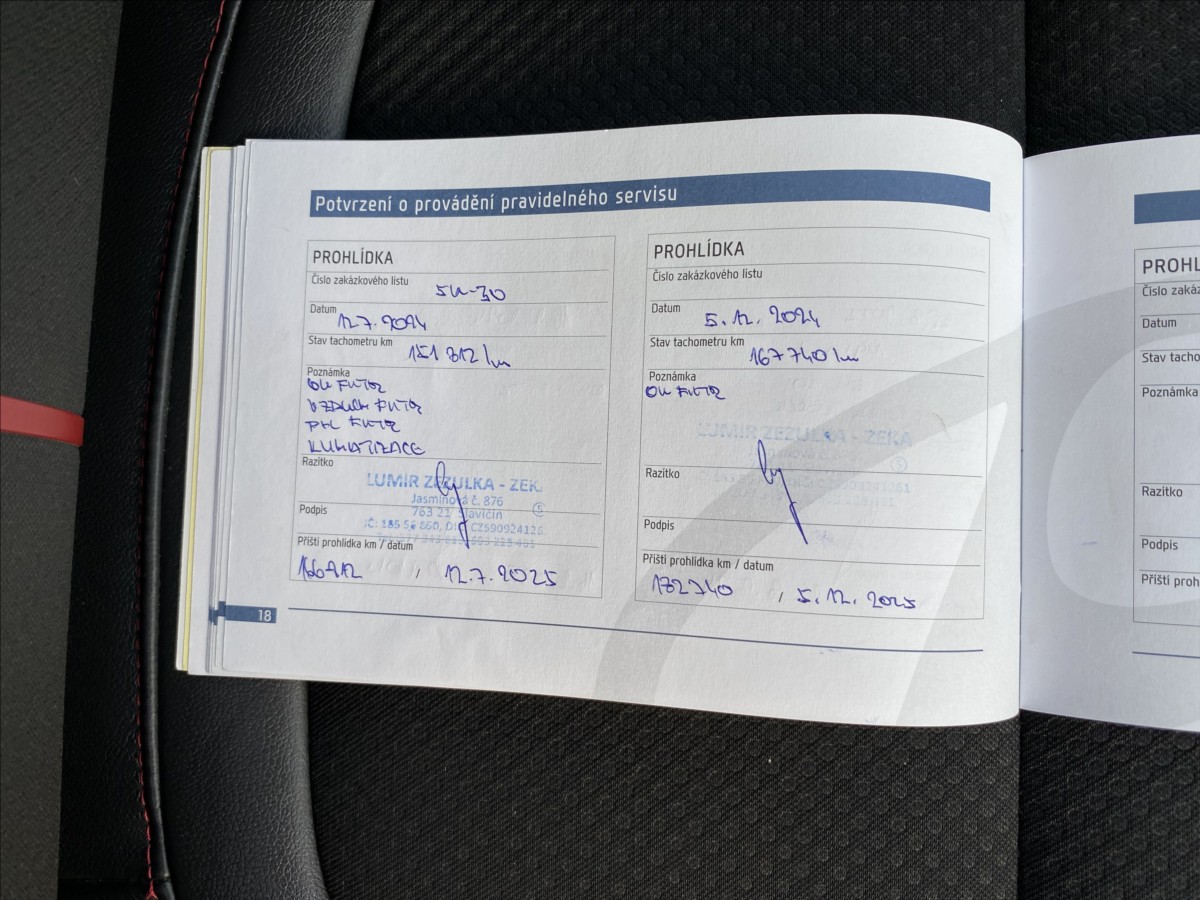 Potvrzení o provádění pravidelného servisu
PROHLÍDKA
Číslo zakázkového listu
5W-30
Datum
12.7.2024
Stav tachometru km
151 812 km
Poznámka
OLEJ FILTR
VZDUCH FILTR
PYL FILTR
KLIMATIZACE
Razítko
LUMÍR ZEZULKA - ZEKA
Jasmínová č. 876
763 21 Slavičín
Podpis
Příští prohlídka km / datum
/ 12.7.2025
PROHLÍDKA
Číslo zakázkového listu
Datum
5.12.2024
Stav tachometru km
167 740 km
Poznámka
OLEJ FILTR
LUMÍR ZEZULKA - ZEKA
Razítko
Podpis
Příští prohlídka km / datum
182740 / 5.12.2025
18
PROHL
Číslo zakáz
Datum
Stav tacho
Poznámka
Razítko
Podpis
Příští proh